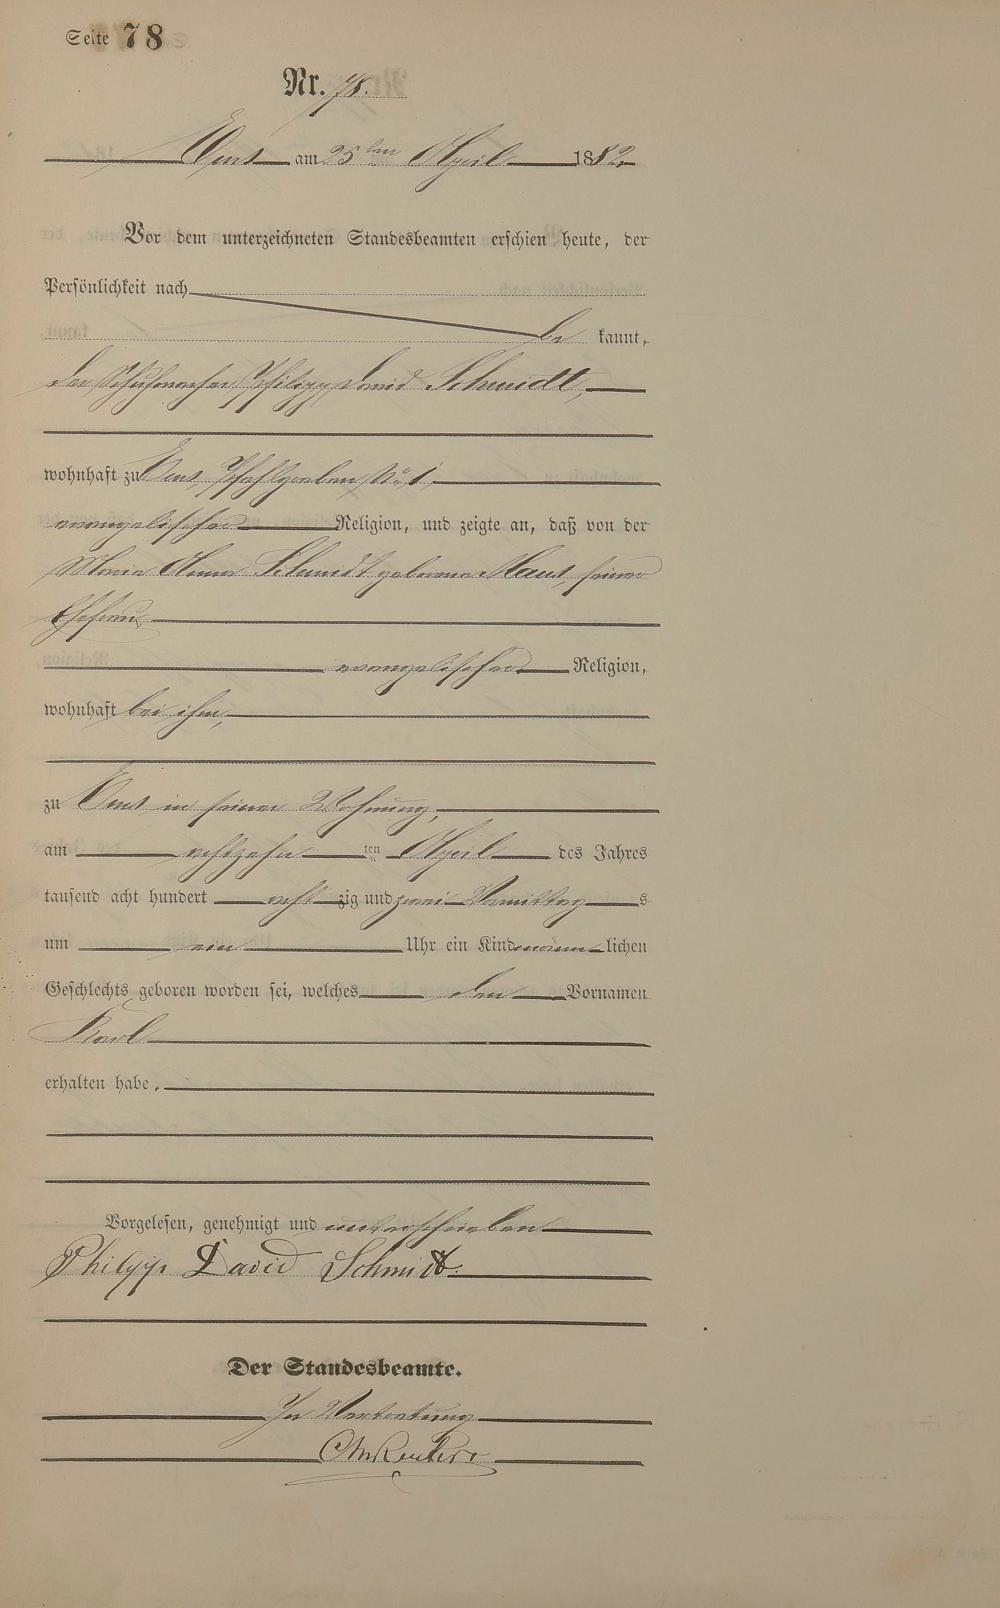 Seite 78
Nr. 78.
Ems am 25ten April 1882.
Vor dem unterzeichneten Standesbeamten erschien heute, der
Persönlichkeit nach
be kannt,
der Schuhmacher Philipp David Schmidt,
wohnhaft zu Ems, Pfahlgraben No. 1,
evangelischer Religion, und zeigte an, daß von der
Maria Anna Schmidt geborene Haus, seiner
Ehefrau,
evangelischer Religion,
wohnhaft bei ihm,
zu Ems in seiner Wohnung,
am achtzehn ten April des Jahres
tausend acht hundert acht zig und zwei Vormittag s
um ein Uhr ein Kind männ lichen
Geschlechts geboren worden sei, welches den Vornamen
Karl
erhalten habe.
Vorgelesen, genehmigt und unterschrieben
Philipp David Schmidt.
Der Standesbeamte.
In Vertretung